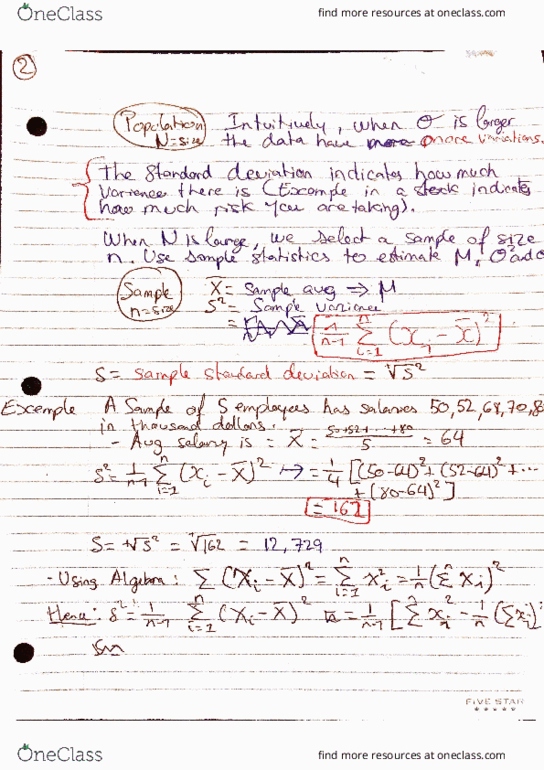 OneClass find more resources at oneclass.com
2
Population Intuitively, when σ is larger
N=size the data have more variations.
The standard deviation indicates how much
variance there is (Example in a stock indicates
how much risk you are taking).
When N is large, we select a sample of size
n. Use sample statistics to estimate M, σ² and σ
Sample X̄ = sample avg ⇒ μ
n=size S² = Sample variance
= 1/n-1 Σ i=1 n (x i - x̄)²
S = sample standard deviation = √S²
Exemple A Sample of 5 employees has salaries 50, 52, 68, 70, 8
in thousand dollars.
- Avg salary is = X̄ = 50+52+...+80 / 5 = 64
s² = 1/n-1 Σ i=1 n (x i - X̄)² → = 1/4 [(50-64)² + (52-64)² + ...
+ (80-64)²]
= 162
S = +√S² = √162 = 12,729
- Using Algebra: Σ (X i - X̄)² = Σ i=1 n x i ² = 1/n (Σ n x i)²
Hence: s² = 1/n-1 Σ i=1 n (X i - X̄)² = 1/n-1 [Σ n x i ² - 1/n (Σ x i)²
FIVE STAR
OneClass find more resources at oneclass.com